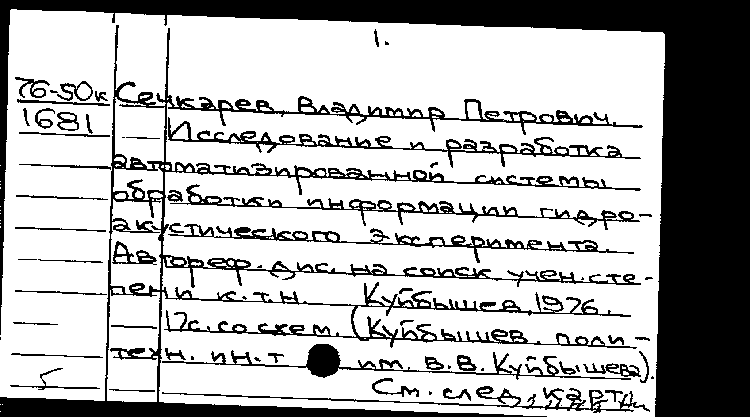 1.
76-50к Сечкарев, Владимир Петрович.
1681 Исследование и разработка
автоматизированной системы
обработки информации гидро-
акустического эксперимента.
Автореф. дис. на соиск учен. сте-
пени к.т.н. Куйбышев, 1976.
17с. со схем. (Куйбышев. поли-
техн. ин-т им. В.В. Куйбышева).
5 См. след. карт.